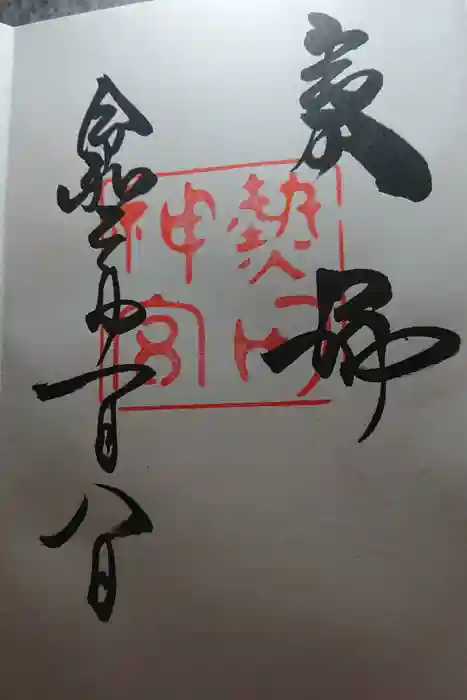 奉拝
熱田
神宮
令和二年一月八日